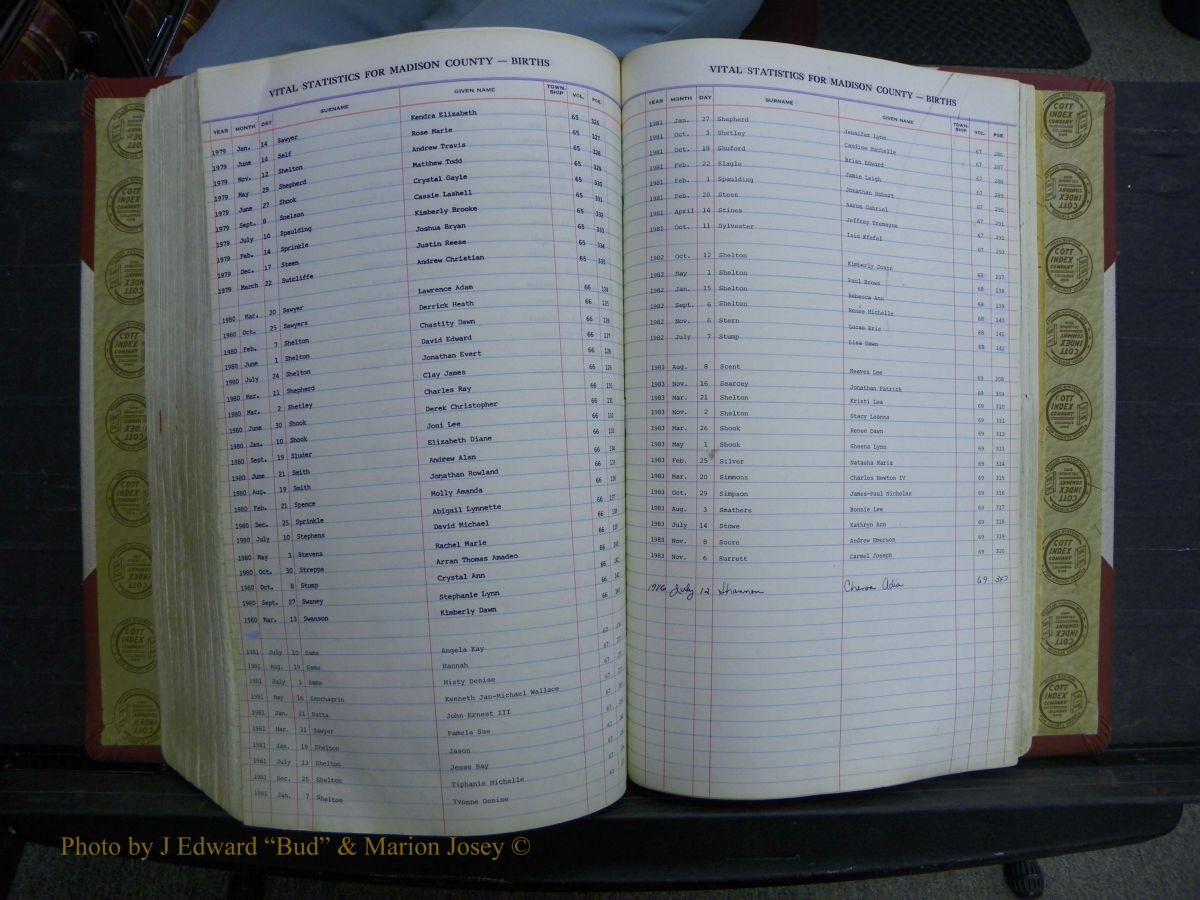 VITAL STATISTICS FOR MADISON COUNTY — BIRTHS
YEAR MONTH DAY SURNAME GIVEN NAME TOWN-SHIP VOL. PGE.
1979 Jan. 14 Sawyer Kendra Elizabeth 65 326
1979 June 14 Self Rose Marie 65 327
1979 Nov. 12 Shelton Andrew Travis 65 328
1979 May 29 Shepherd Matthew Todd 65 329
1979 June 27 Shook Crystal Gayle 65 330
1979 Sept. 8 Snelson Cassie Lashell 65 331
1979 July 10 Spaulding Kimberly Brooke 65 332
1979 Feb. 14 Sprinkle Joshua Bryan 65 333
1979 Dec. 17 Steen Justin Reese 65 334
1979 March 22 Sutcliffe Andrew Christian 65 335
1980 Mar. 20 Sawyer Lawrence Adam 66 124
1980 Oct. 25 Sawyers Derrick Heath 66 125
1980 Feb. 7 Shelton Chastity Dawn 66 126
1980 June 1 Shelton David Edward 66 127
1980 July 24 Shelton Jonathan Evert 66 128
1980 Mar. 11 Shepherd Clay James 66 129
1980 Mar. 2 Shetley Charles Ray 66 130
1980 June 30 Shook Derek Christopher 66 131
1980 Jan. 10 Shook Joni Lee 66 132
1980 Sept. 19 Sluder Elizabeth Diane 66 133
1980 June 21 Smith Andrew Alan 66 134
1980 Aug. 19 Smith Jonathan Rowland 66 135
1980 Feb. 21 Spence Molly Amanda 66 136
1980 Dec. 25 Sprinkle Abigail Lynnette 66 137
1980 July 10 Stephens David Michael 66 138
1980 May 3 Stevens Rachel Marie 66 139
1980 Oct. 30 Streppa Arran Thomas Amadeo 66
1980 Oct. 8 Stump Crystal Ann 66
1980 Sept. 27 Swaney Stephanie Lynn 66
1980 Mar. 13 Swanson Kimberly Dawn 66
1981 July 10 Sams Angela Kay 67
1981 Aug. 19 Sams Hannah 67
1981 July 1 Sams Misty Denise 67
1981 May 16 Sanchagrin Kenneth Jan-Michael Wallace 67
1981 Jan. 21 Satta John Ernest III 67
1981 Mar. 31 Sawyer Pamela Sue 67
1981 Jan. 19 Shelton Jason 67
1981 July 13 Shelton Jesse Ray 67
1981 Dec. 25 Shelton Tiphanie Michelle 67
1981 Jan. 7 Shelton Yvonne Denise 67
VITAL STATISTICS FOR MADISON COUNTY — BIRTHS
YEAR MONTH DAY SURNAME GIVEN NAME TOWN-SHIP VOL. PGE.
1981 Jan. 27 Shepherd Jennifer Lynn 67 286
1981 Oct. 3 Shetley Candice Machelle 67 287
1981 Oct. 19 Shuford Brian Edward 67 288
1981 Feb. 22 Slagle Jamie Leigh 67 289
1981 Feb. 1 Spaulding Jonathan Robert 67 290
1981 Feb. 20 Steen Aaron Gabriel 67 291
1981 April 14 Stines Jeffrey Tremayne 67 292
1981 Oct. 11 Sylvester Isis Kfefel 67 293
1982 Oct. 12 Shelton Kimberly Joann 68 137
1982 May 1 Shelton Paul Brown 68 138
1982 Jan. 15 Shelton Rebecca Ann 68 139
1982 Sept. 6 Shelton Renee Michelle 68 140
1982 Nov. 6 Stern Lucas Eric 68 141
1982 July 7 Stump Lisa Dawn 68 142
1983 Aug. 8 Scent Heaven Lee 69 308
1983 Nov. 16 Searcey Jonathan Patrick 69 309
1983 Mar. 21 Shelton Kristi Lea 69 310
1983 Nov. 2 Shelton Stacy Leanna 69 311
1983 Mar. 26 Shook Renee Dawn 69 312
1983 May 1 Shook Sheena Lynn 69 313
1983 Feb. 25 Silver Natasha Maria 69 314
1983 Mar. 20 Simmons Charles Newton IV 69 315
1983 Oct. 29 Simpson James-Paul Nicholas 69 316
1983 Aug. 3 Smathers Bonnie Lee 69 317
1983 July 14 Stowe Kathryn Ann 69 318
1983 Nov. 8 Sucre Andrew Emerson 69 319
1983 Nov. 6 Surrett Carmel Joseph 69 320
July 12 Shannon 69
COTT INDEX COMPANY
Photo by J Edward “Bud” & Marion Josey ©